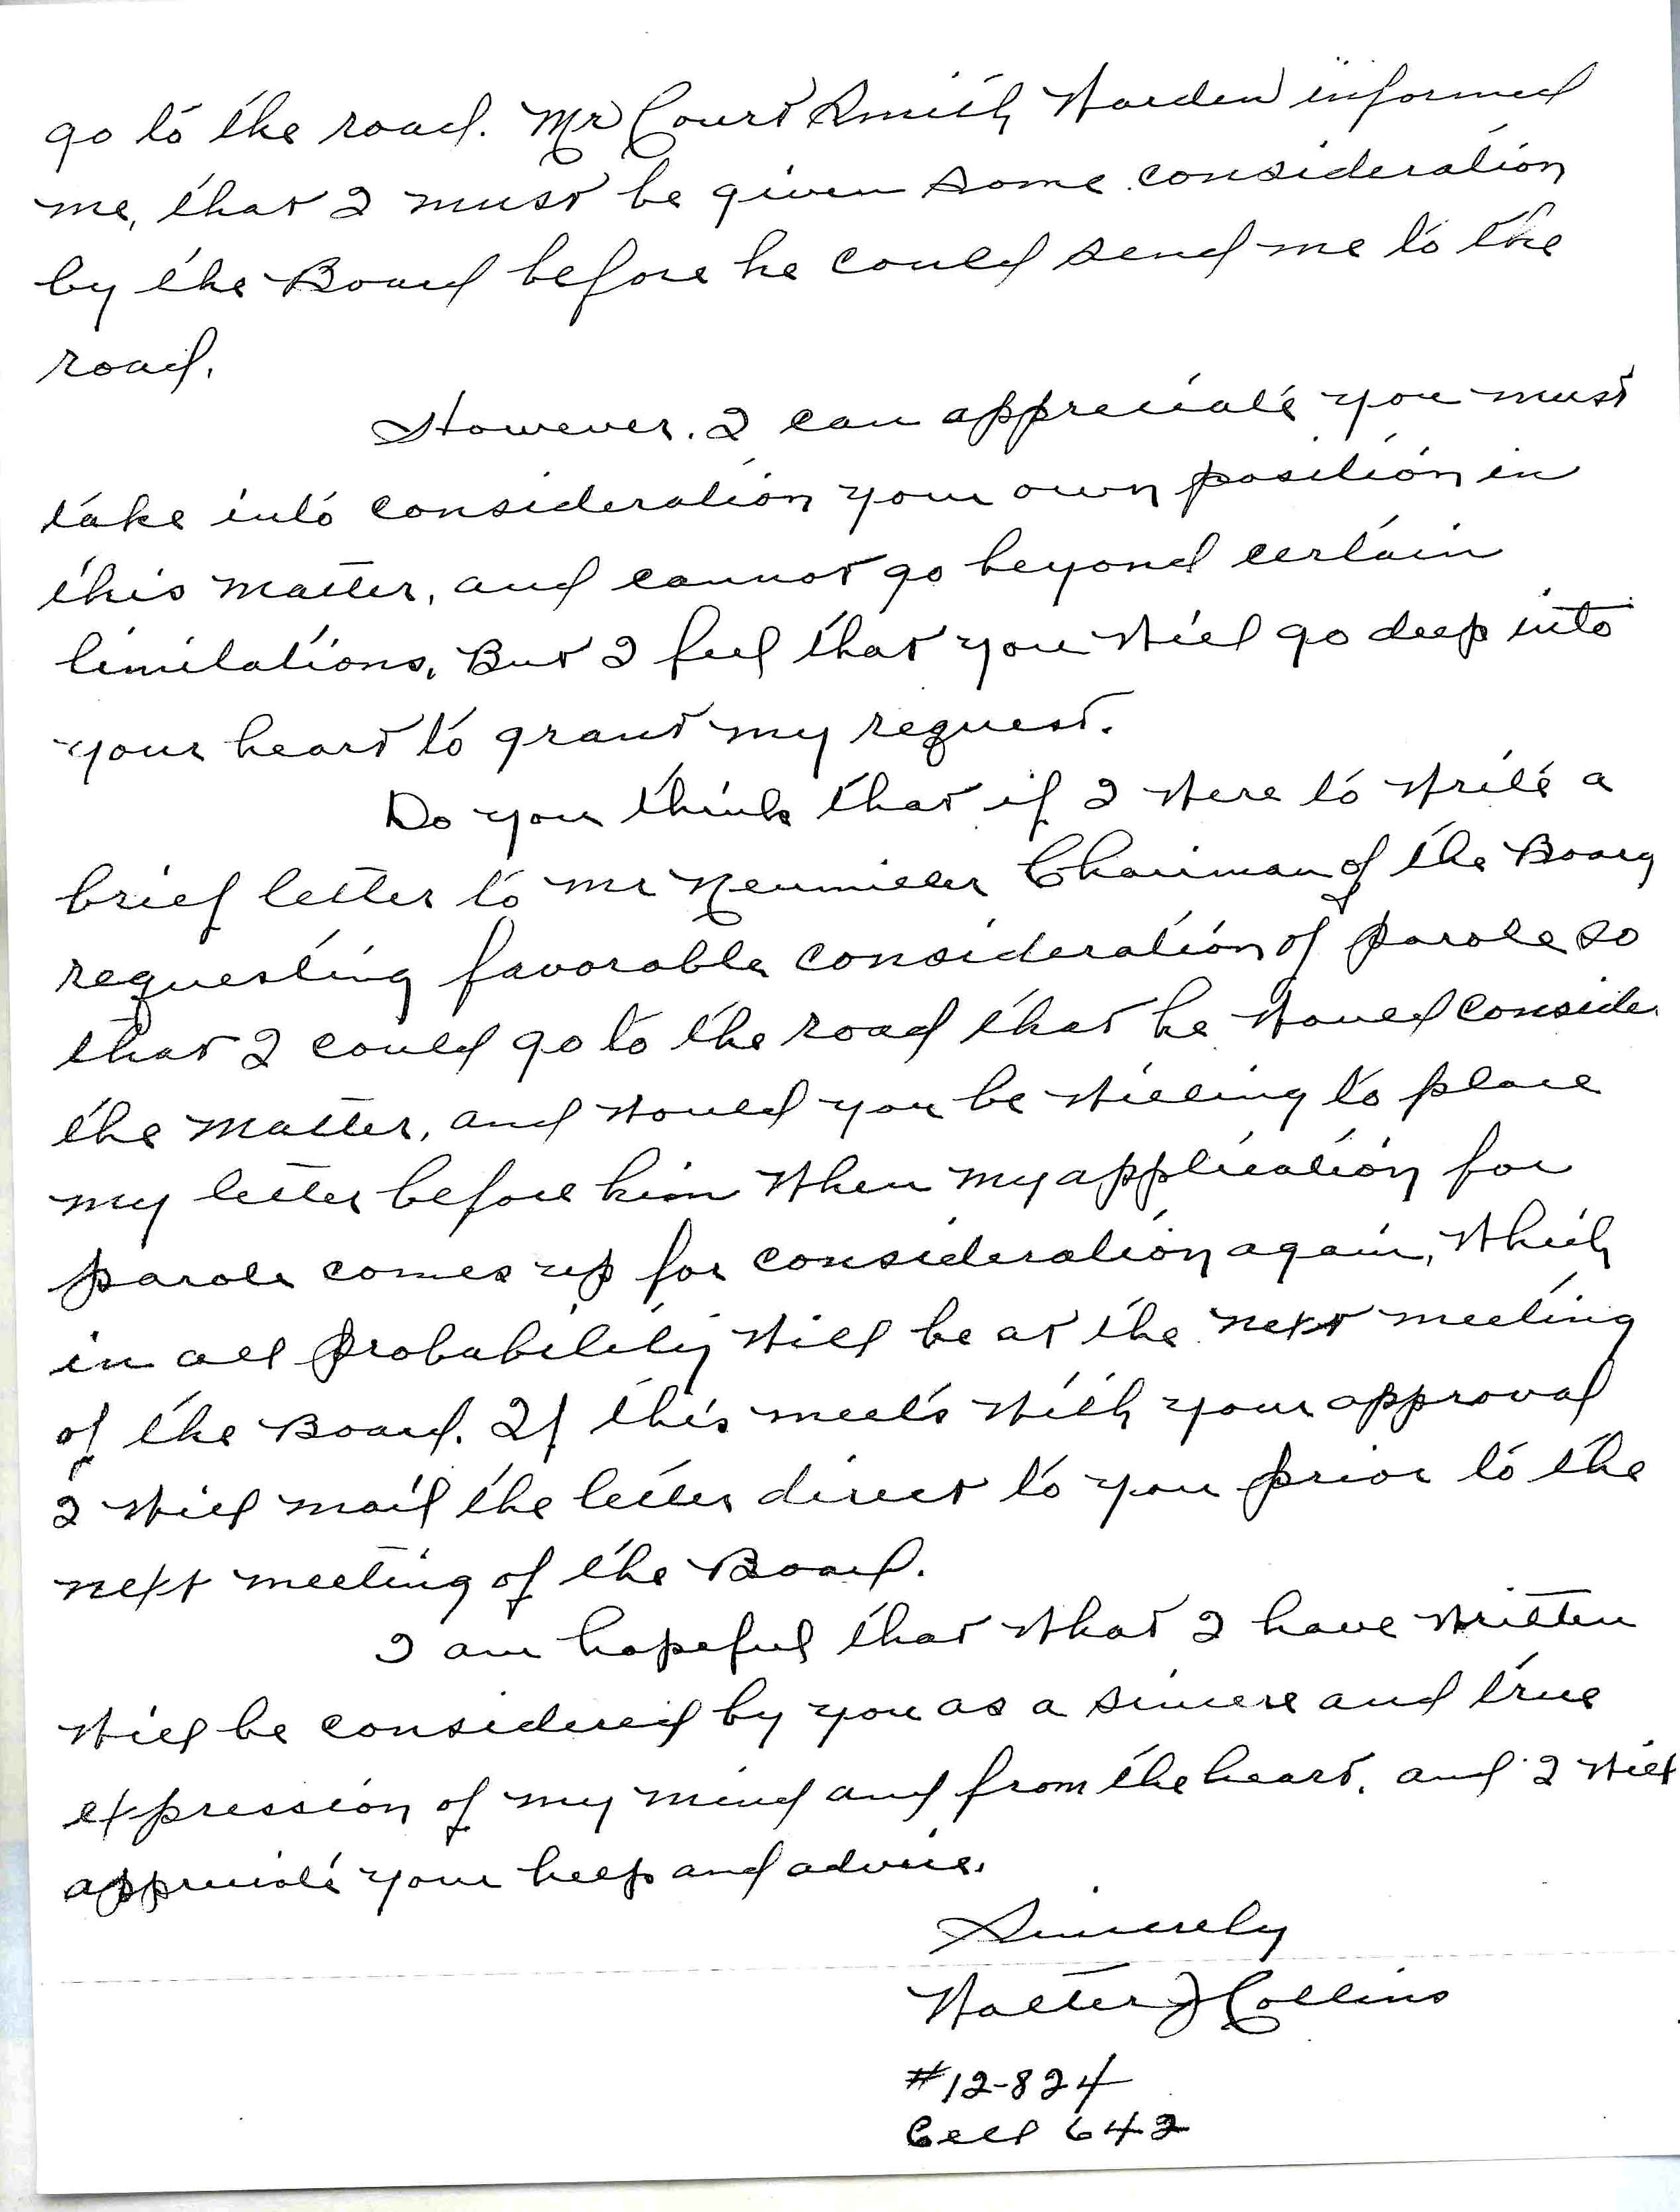 go to the road. Mr Court Smith Warden informed
me, that I must be given some consideration
by the Board before he could send me to the
road.
However. I can appreciate you must
take into consideration your own position in
this matter, and cannot go beyond certain
limitations, But I feel that you will go deep into
your heart to grant my request.
Do you think that if I were to write a
brief letter to Mr Neumiller Chairman of the Board
requesting favorable consideration of parole so
that I could go to the road that he would conside
the matter, and would you be willing to place
my letter before him when my application for
parole comes up for consideration again, which
in all probability will be at the next meeting
of the Board. If this meets with your approval
I will mail the letter direct to you prior to the
next meeting of the Board.
I am hopeful that what I have written
will be considered by you as a sincere and true
expression of my mind and from the heart, and I will
appreciate your help and advice.
Sincerely
Walter J Collins
#12-824
Cell 642